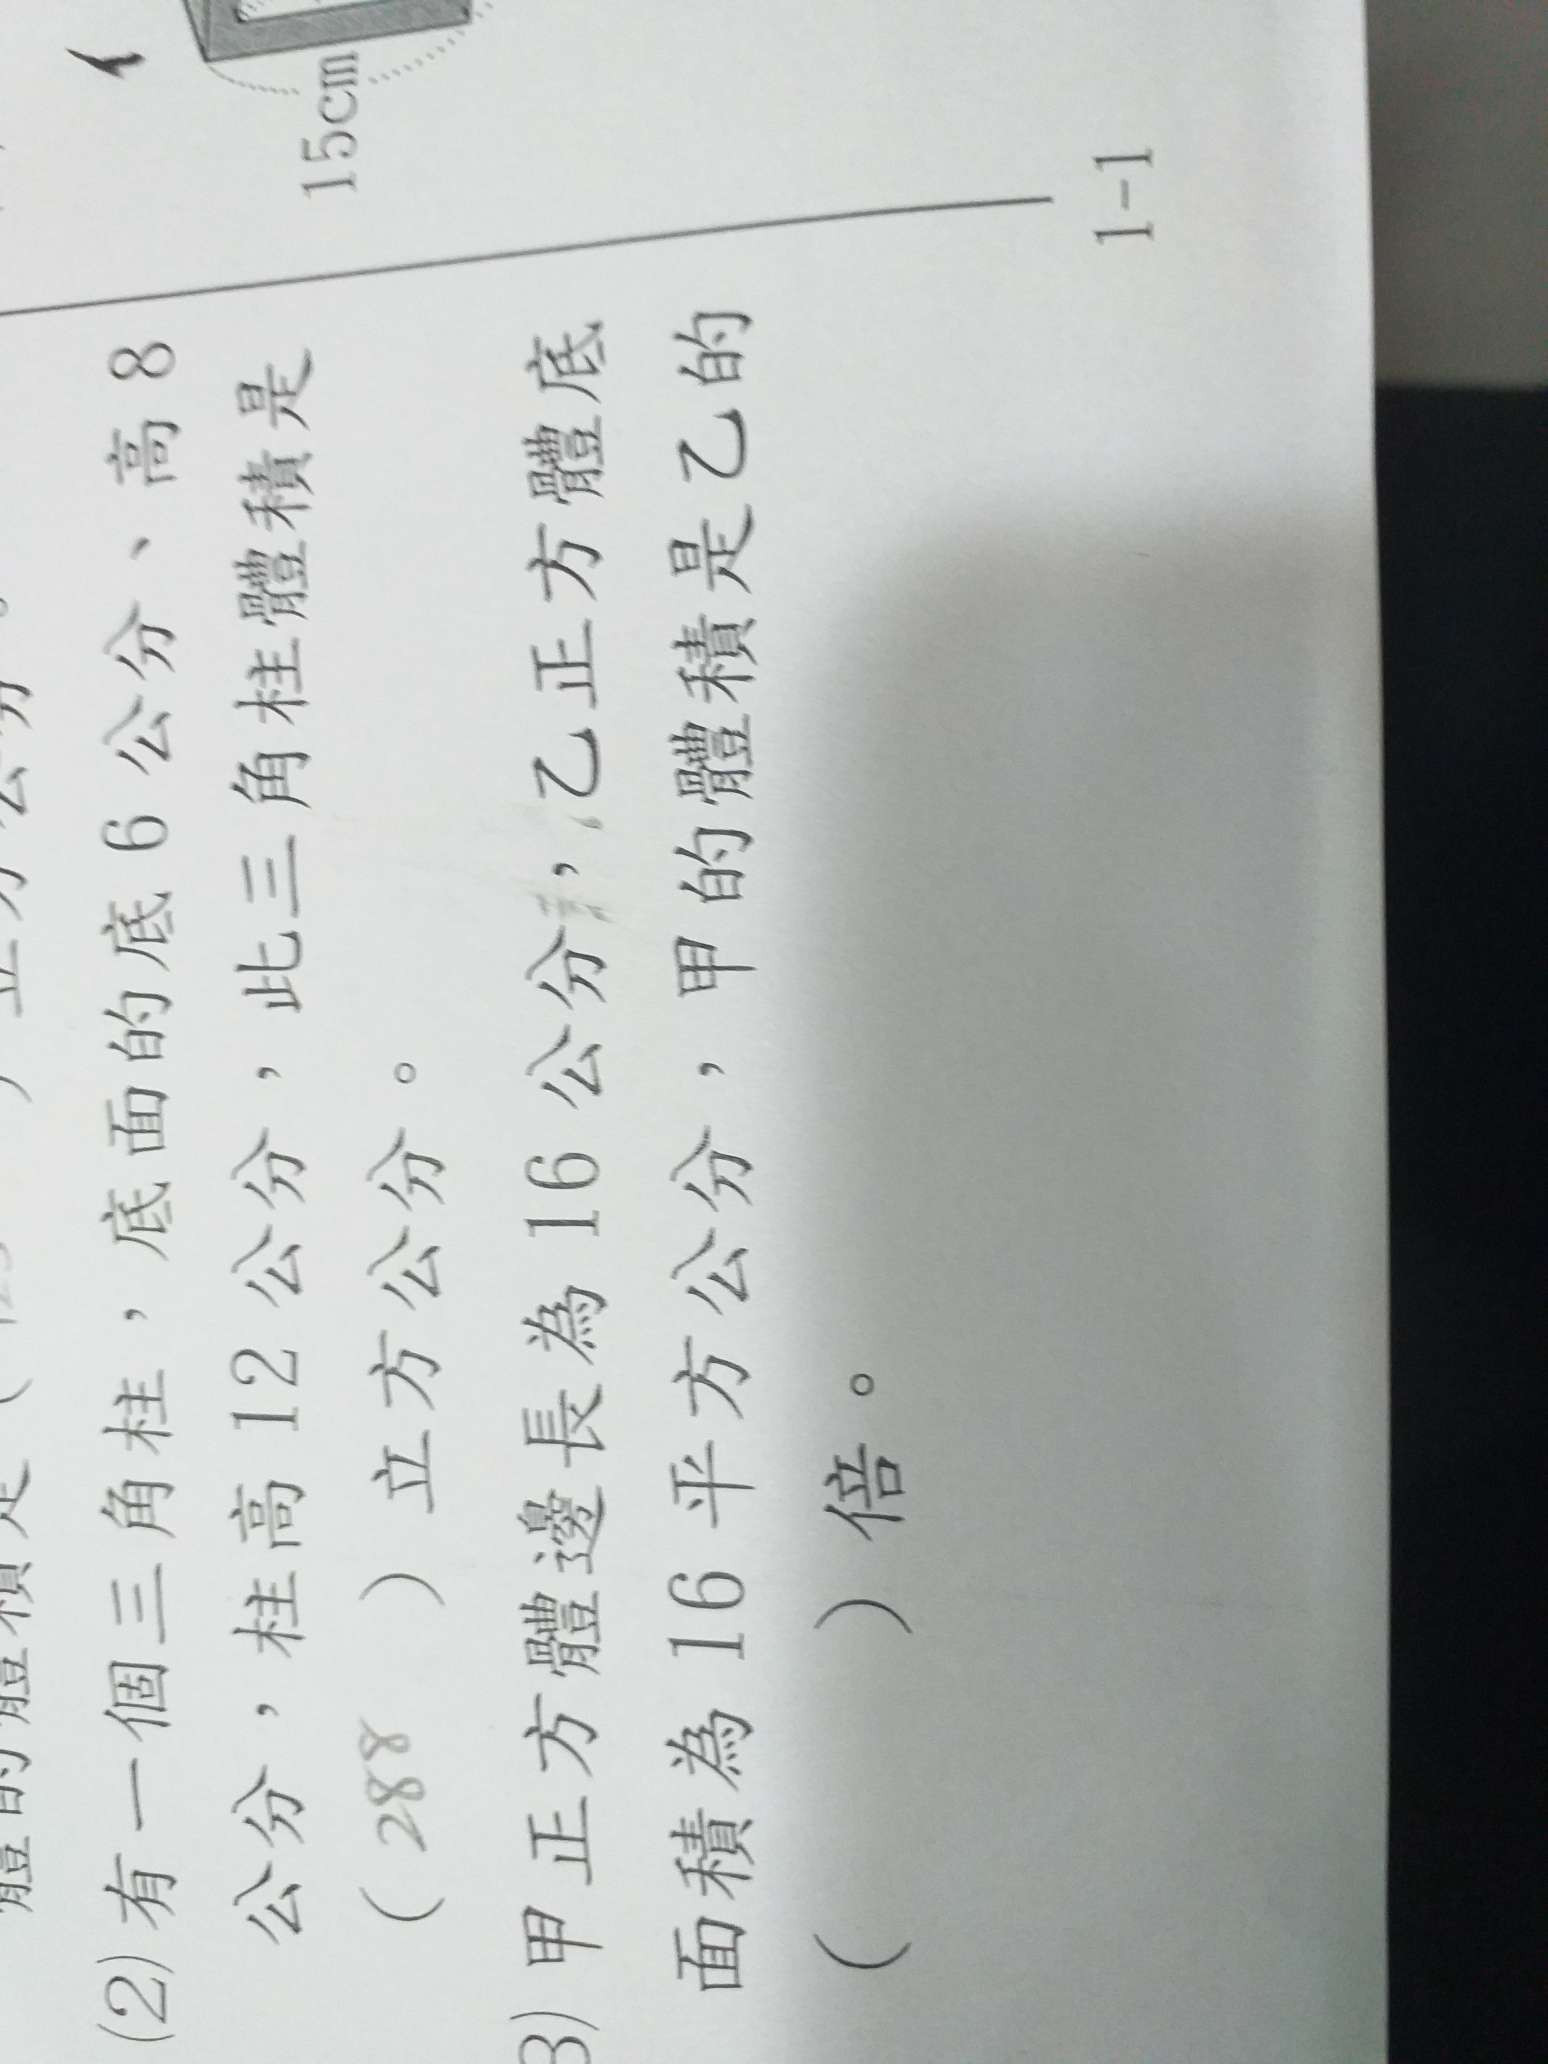 (2)有一個三角柱，底面的底6公分、高8
公分，柱高12公分，此三角柱體積是
（288）立方公分。
3)甲正方體邊長為16公分，乙正方體底
面積為16平方公分，甲的體積是乙的
（ ）倍。
15cm
1-1